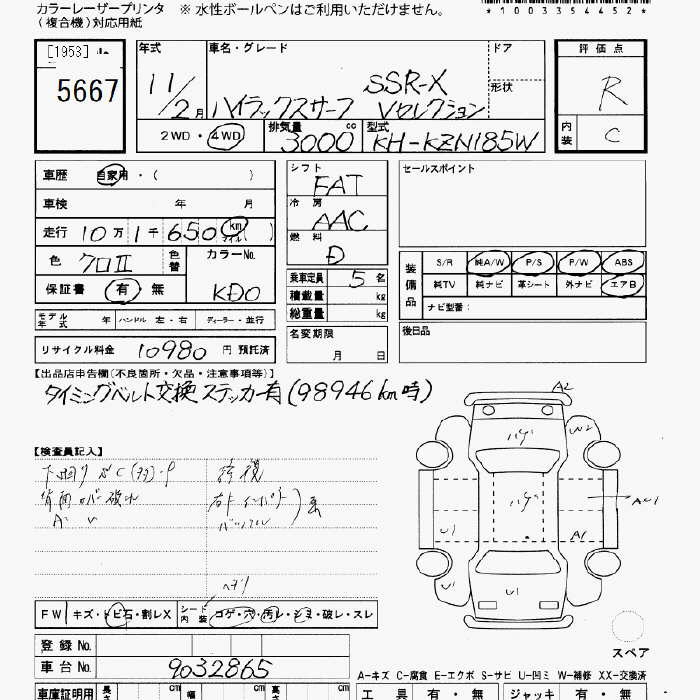 カラーレーザープリンタ
（複合機）対応用紙
※ 水性ボールペンはご利用いただけません。
*1003354452*
[1953]
5667
年式
11/2月
車名・グレード
SSR-X
ハイラックスサーフ Vセレクション
ドア
形状
2WD・4WD
排気量
3000 cc
型式
KH-KZN185W
評価点
R
内装
C
車歴 自家用・（ ）
車検 年 月
走行 10万 1千 650 km マイル（ ）
色 クロII
色替
カラーNo.
KD0
保証書 有・無
シフト
FAT
冷房
AAC
燃料
D
乗車定員 5 名
積載量 kg
総重量 kg
名変期限
月 日
セールスポイント
装備品
S/R 純A/W P/S P/W ABS
純TV 純ナビ 革シート 外ナビ エアB
ナビ型番：
後日品
モデル年式 年 ハンドル 左・右 ディーラー・並行
リサイクル料金 10980 円 預託済
【出品店申告欄(不良箇所・欠品・注意事項等)】
タイミングベルト交換ステッカー有(98946km時)
【検査員記入】
A2
W2
U1
A
U1
U1
U1
スペア
FW キズ・トビ石・割レX
シート内装 コゲ・穴・汚レ・シミ・破レ・スレ
登録No.
車台No. 9032865
A-キズ C-腐食 E-エクボ S-サビ U-凹ミ W-補修 XX-交換済
車庫証明用 長さ cm 幅 cm 高さ cm
工具 有・無 ジャッキ 有・無